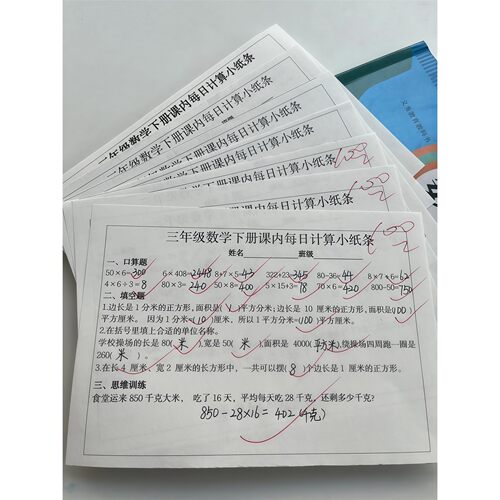 三年级数学下册课内每日计算小纸条
三年级数学下册课内每日计算小纸条
三年级数学下册课内每日计算小纸条
三年级数学下册课内每日计算小纸条
三年级数学下册课内每日计算小纸条
100
三年级数学下册课内每日计算小纸条
100
三年级数学下册课内每日计算小纸条
100
姓名 班级
一、口算题
50×6=300 6×408=2448 8+7×5=43 322+23=345 80-36=44 8×7+6=62
4×6÷3=8 80×3=240 50×8=400 5×15+3=78 70×6=420 800-50=750
二、填空题
1.边长是 1 分米的正方形,面积是(1)平方分米;边长是 10 厘米的正方形,面积是(100)
平方厘米。 因为 1 分米=(10)厘米, 所以 1 平方分米=(100)平方厘米。
2.在括号里填上合适的单位名称。
学校操场的长是 80(米),宽是 50(米),面积是 4000(平方米),绕操场四周跑一圈是
260(米)。
3.在长 4 厘米、宽 2 厘米的长方形中,一共可以摆(8)个边长是 1 厘米的正方形。
三、思维训练
食堂运来 850 千克大米, 吃了 16 天, 平均每天吃 28 千克, 还剩多少千克?
850-28×16=402(千克)